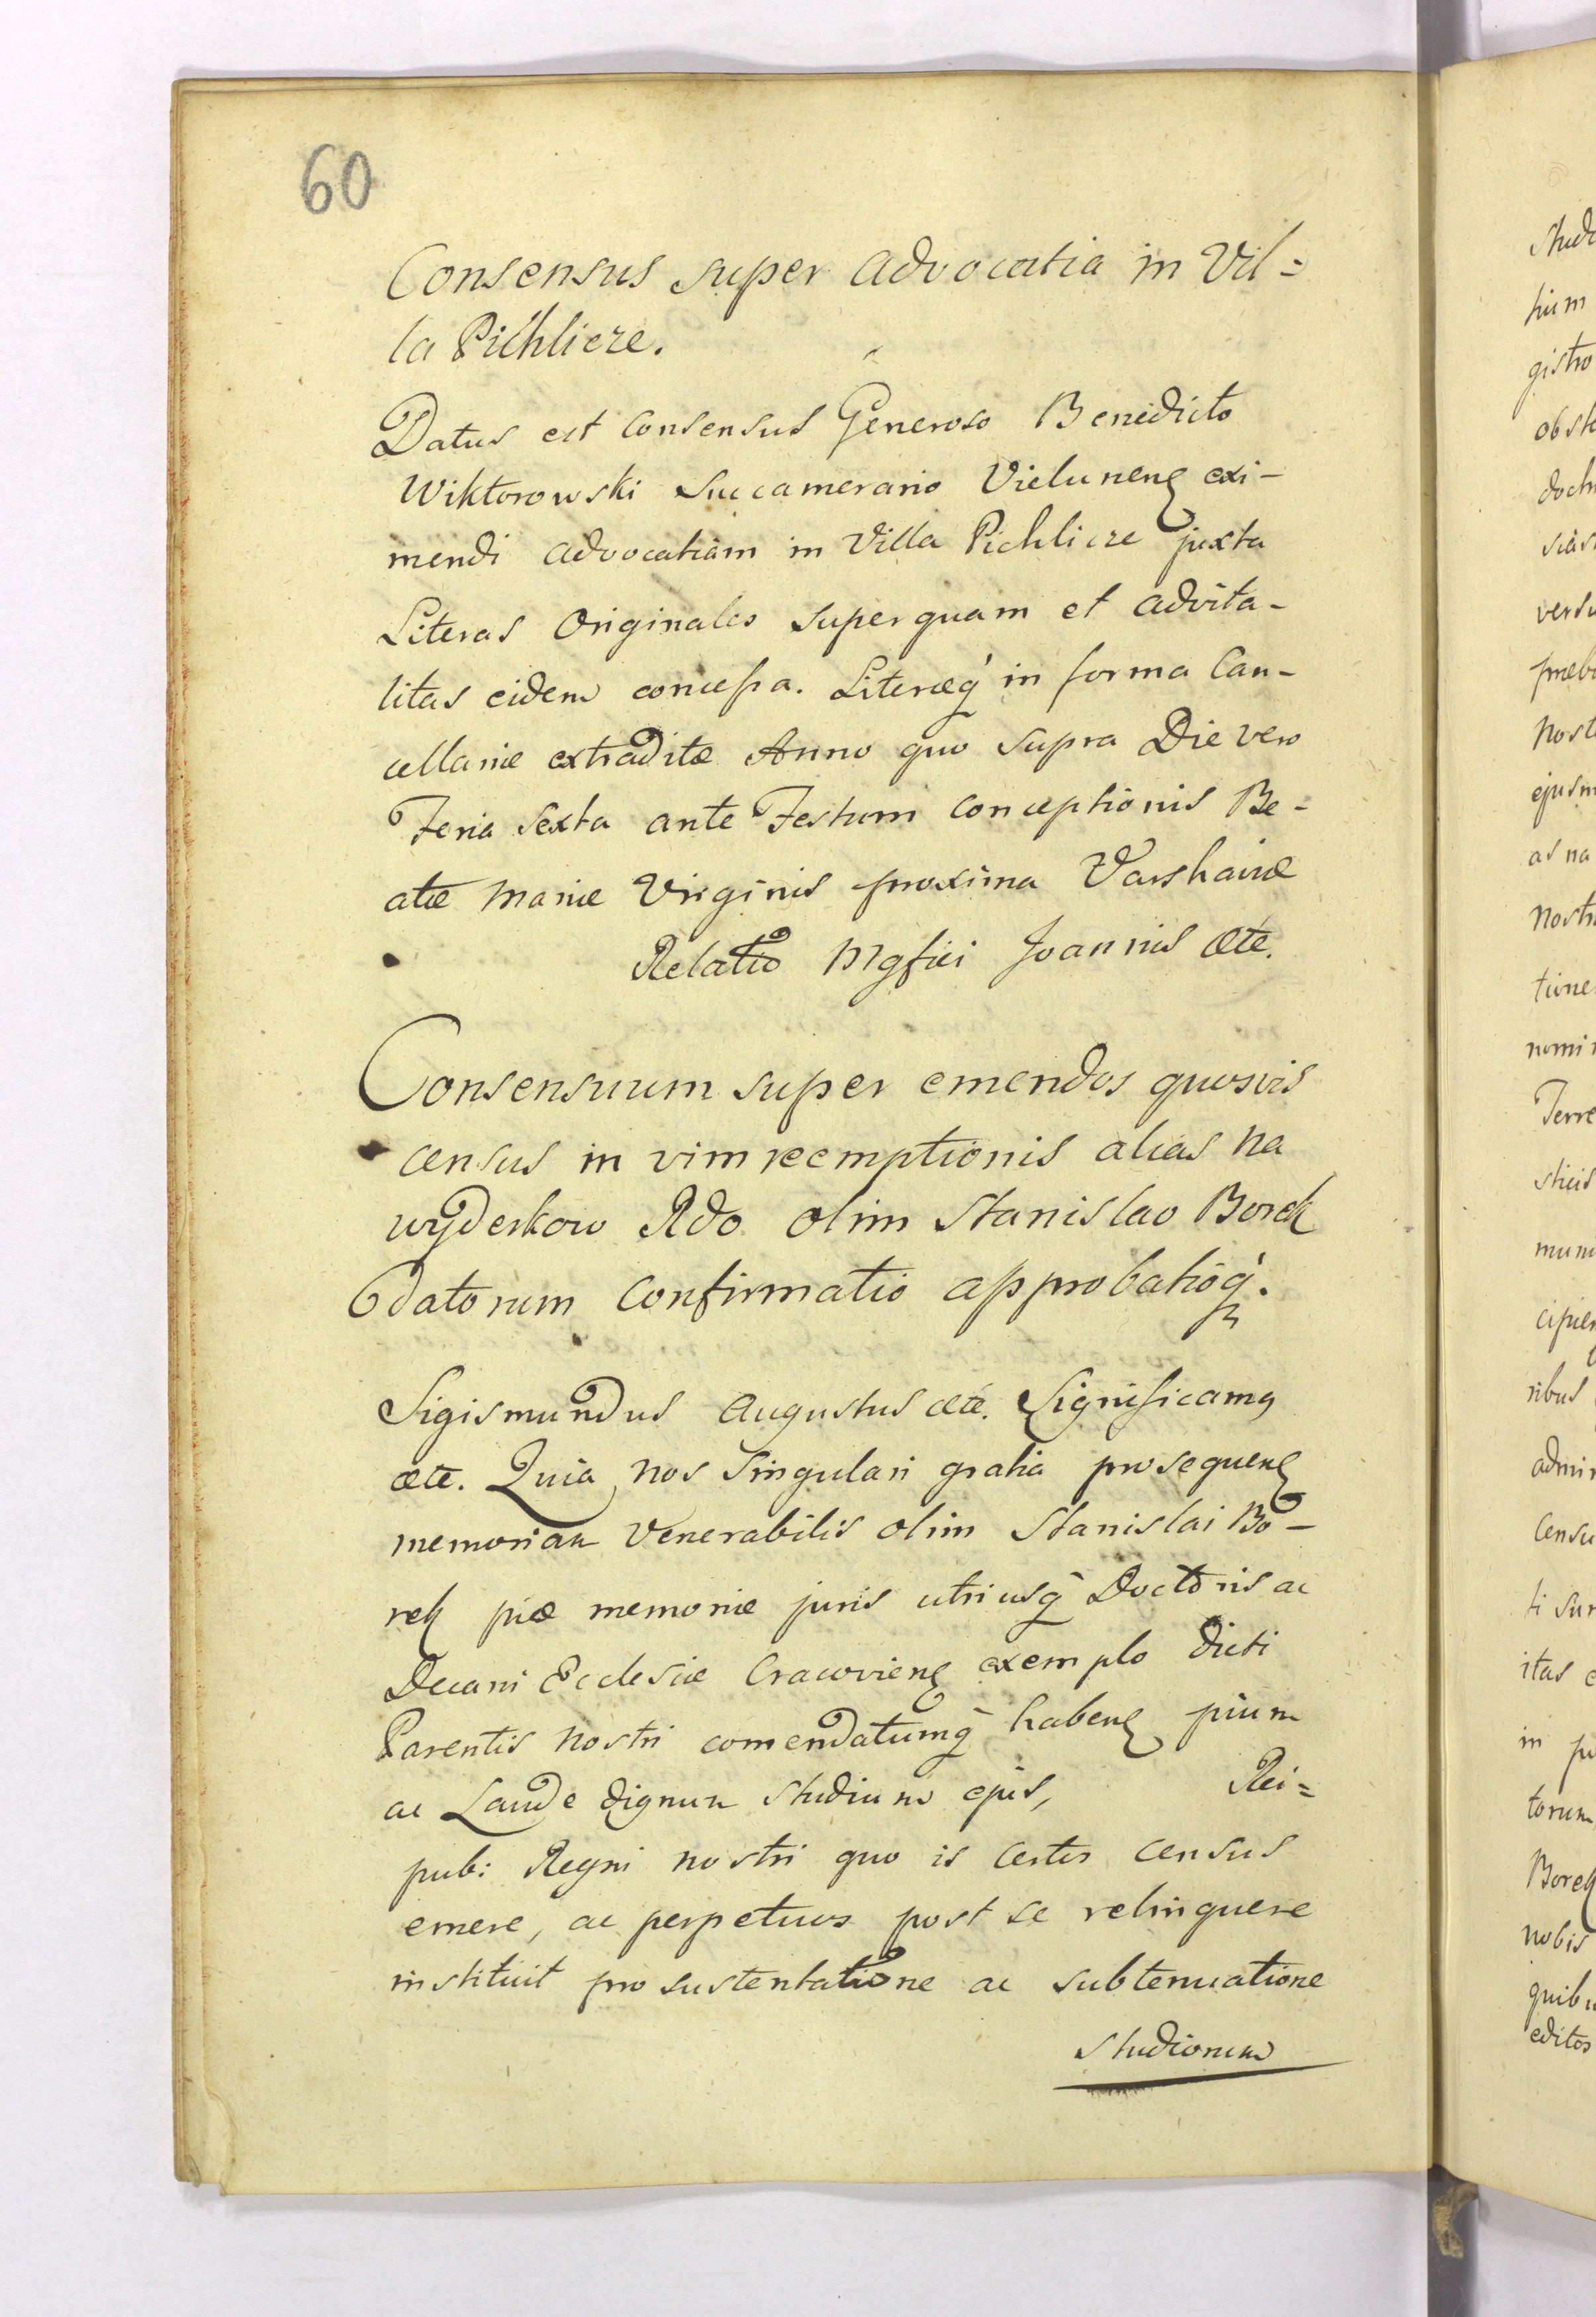 60
Consensus super advocatia in Vil=
la Pichlicze.
Datus est consensus Generoso Benedicto
Wiktorowski Succamerario Vielunenę exi-
mendi advocatiam in Villa Pichlicze juxta
Literas Originales superquam et advita-
litas eidem concessa. Literæq́ in forma Can-
cellariæ extraditæ Anno quo supra Die vero
Feria sexta ante Festum conceptionis Be-
atæ Mariæ Virginis proxima Varshaviæ
Relatio Mgfici Joannis ete.
Consensuum super emendos quosvis
census in vim reemptionis alias na
wyderkow Rdo olim Stanislao Borek
datorum confirmatio approbatioq́.
Sigismundus Augustus ete. Significamq
ete. Quia nos singulari gratia prosequenę
memoriam Venerabilis olim Stanislai Bo-
rek piæ memoriæ juris utriusq́ Doctoris ac
Decani Ecclesiæ Cracovienę exemplo dicti
Parentis nostri comendatumq́ habenę pium
ac Laude dignum studium ejus, Rei=
pub: Regni nostri quo is certos census
emere, ac perpetuos post se relinquere
instituit pro sustentatione ac subtenuatione
studiorum